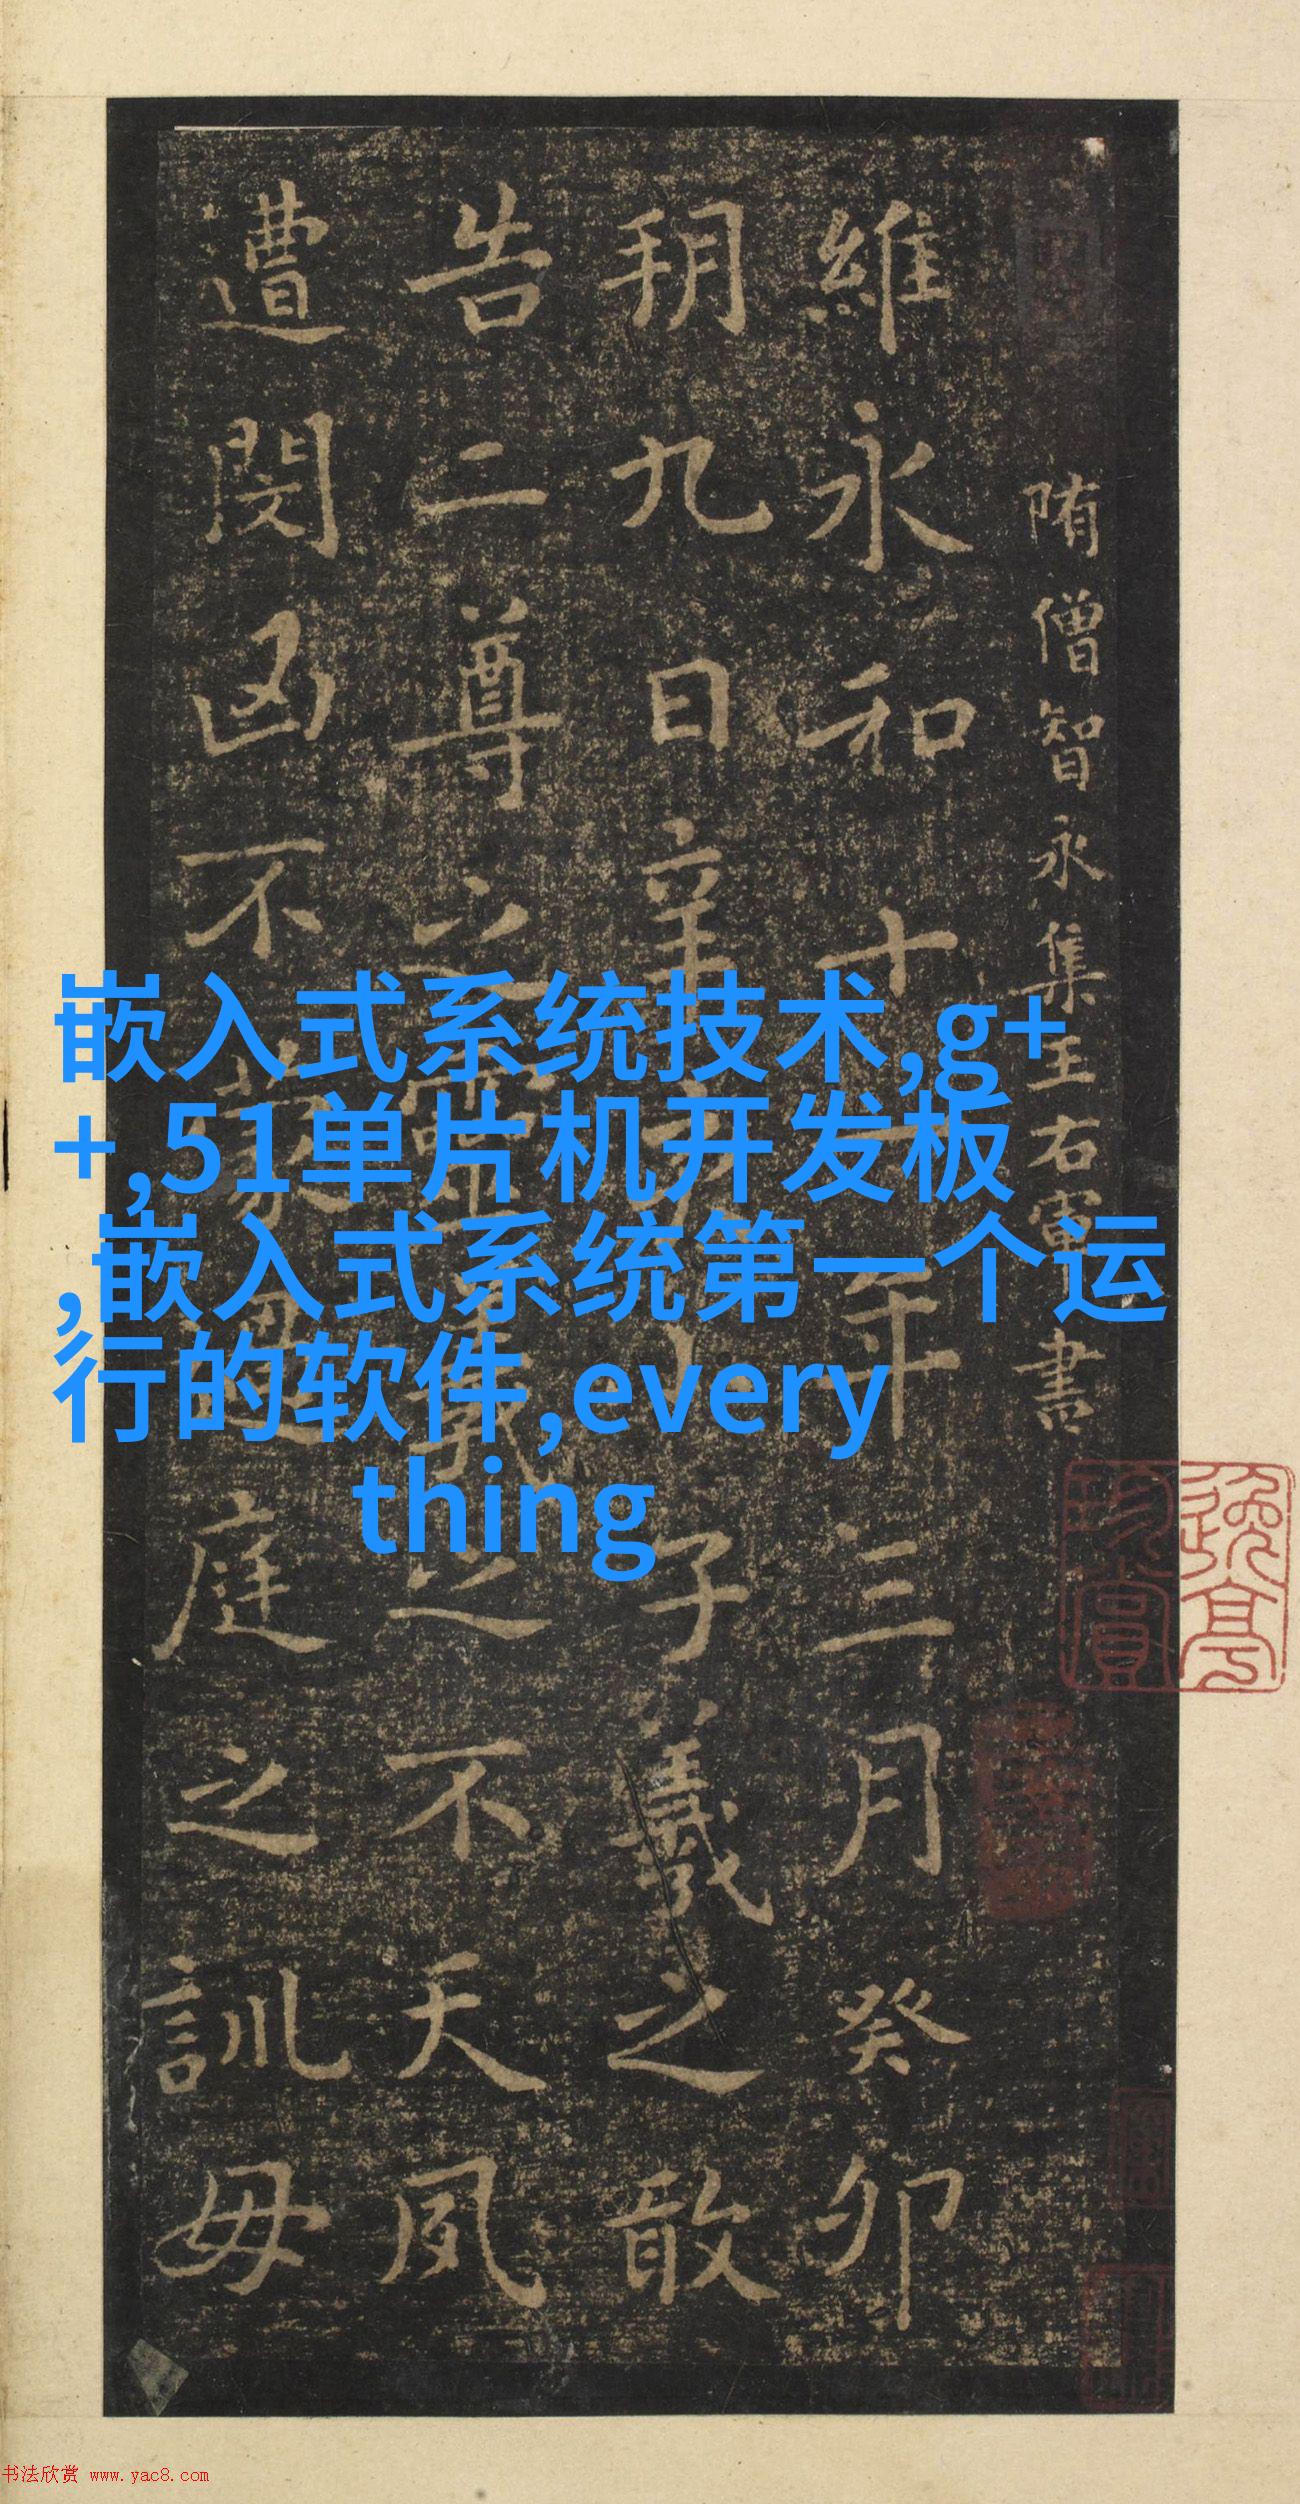 隋僧智永集王右軍書
維永和十一年三月癸卯
朔九日辛亥小子羲之敢
告二尊之靈羲之不天夙
遭閔凶不蒙過庭之訓毋
嵌入式系统技术,g+
+,51单片机开发板
,嵌入式系统第一个运
行的软件,every
thing
珍賞
书法欣赏 www.yac8.com